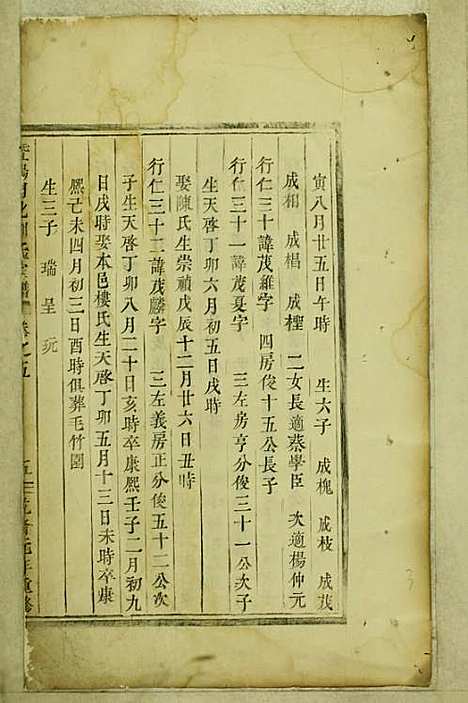 寅八月廿五日午時 生六子 成槐 成枝 成茂
成相 成椙 成檉 二女長適蔡學臣 次適楊仲元
行仁三十諱茂維字 四房俊十五公長子
行仁三十一諱茂夏字 三左房亨分俊三十一公次子
生天啓丁卯六月初五日戌時
娶陳氏生崇禎戊辰十二月廿六日丑時
行仁三十二諱茂麟字 三左義房正分俊五十二公次
子生天啓丁卯八月二十日亥時卒康熙壬子二月初九
日戌時娶本邑樓氏生天啓丁卯五月十三日未時卒康
熙己未四月初三日酉時俱葬毛竹園
生三子 瑞呈 玩
宗譜 卷之五 五 乾隆元年重修